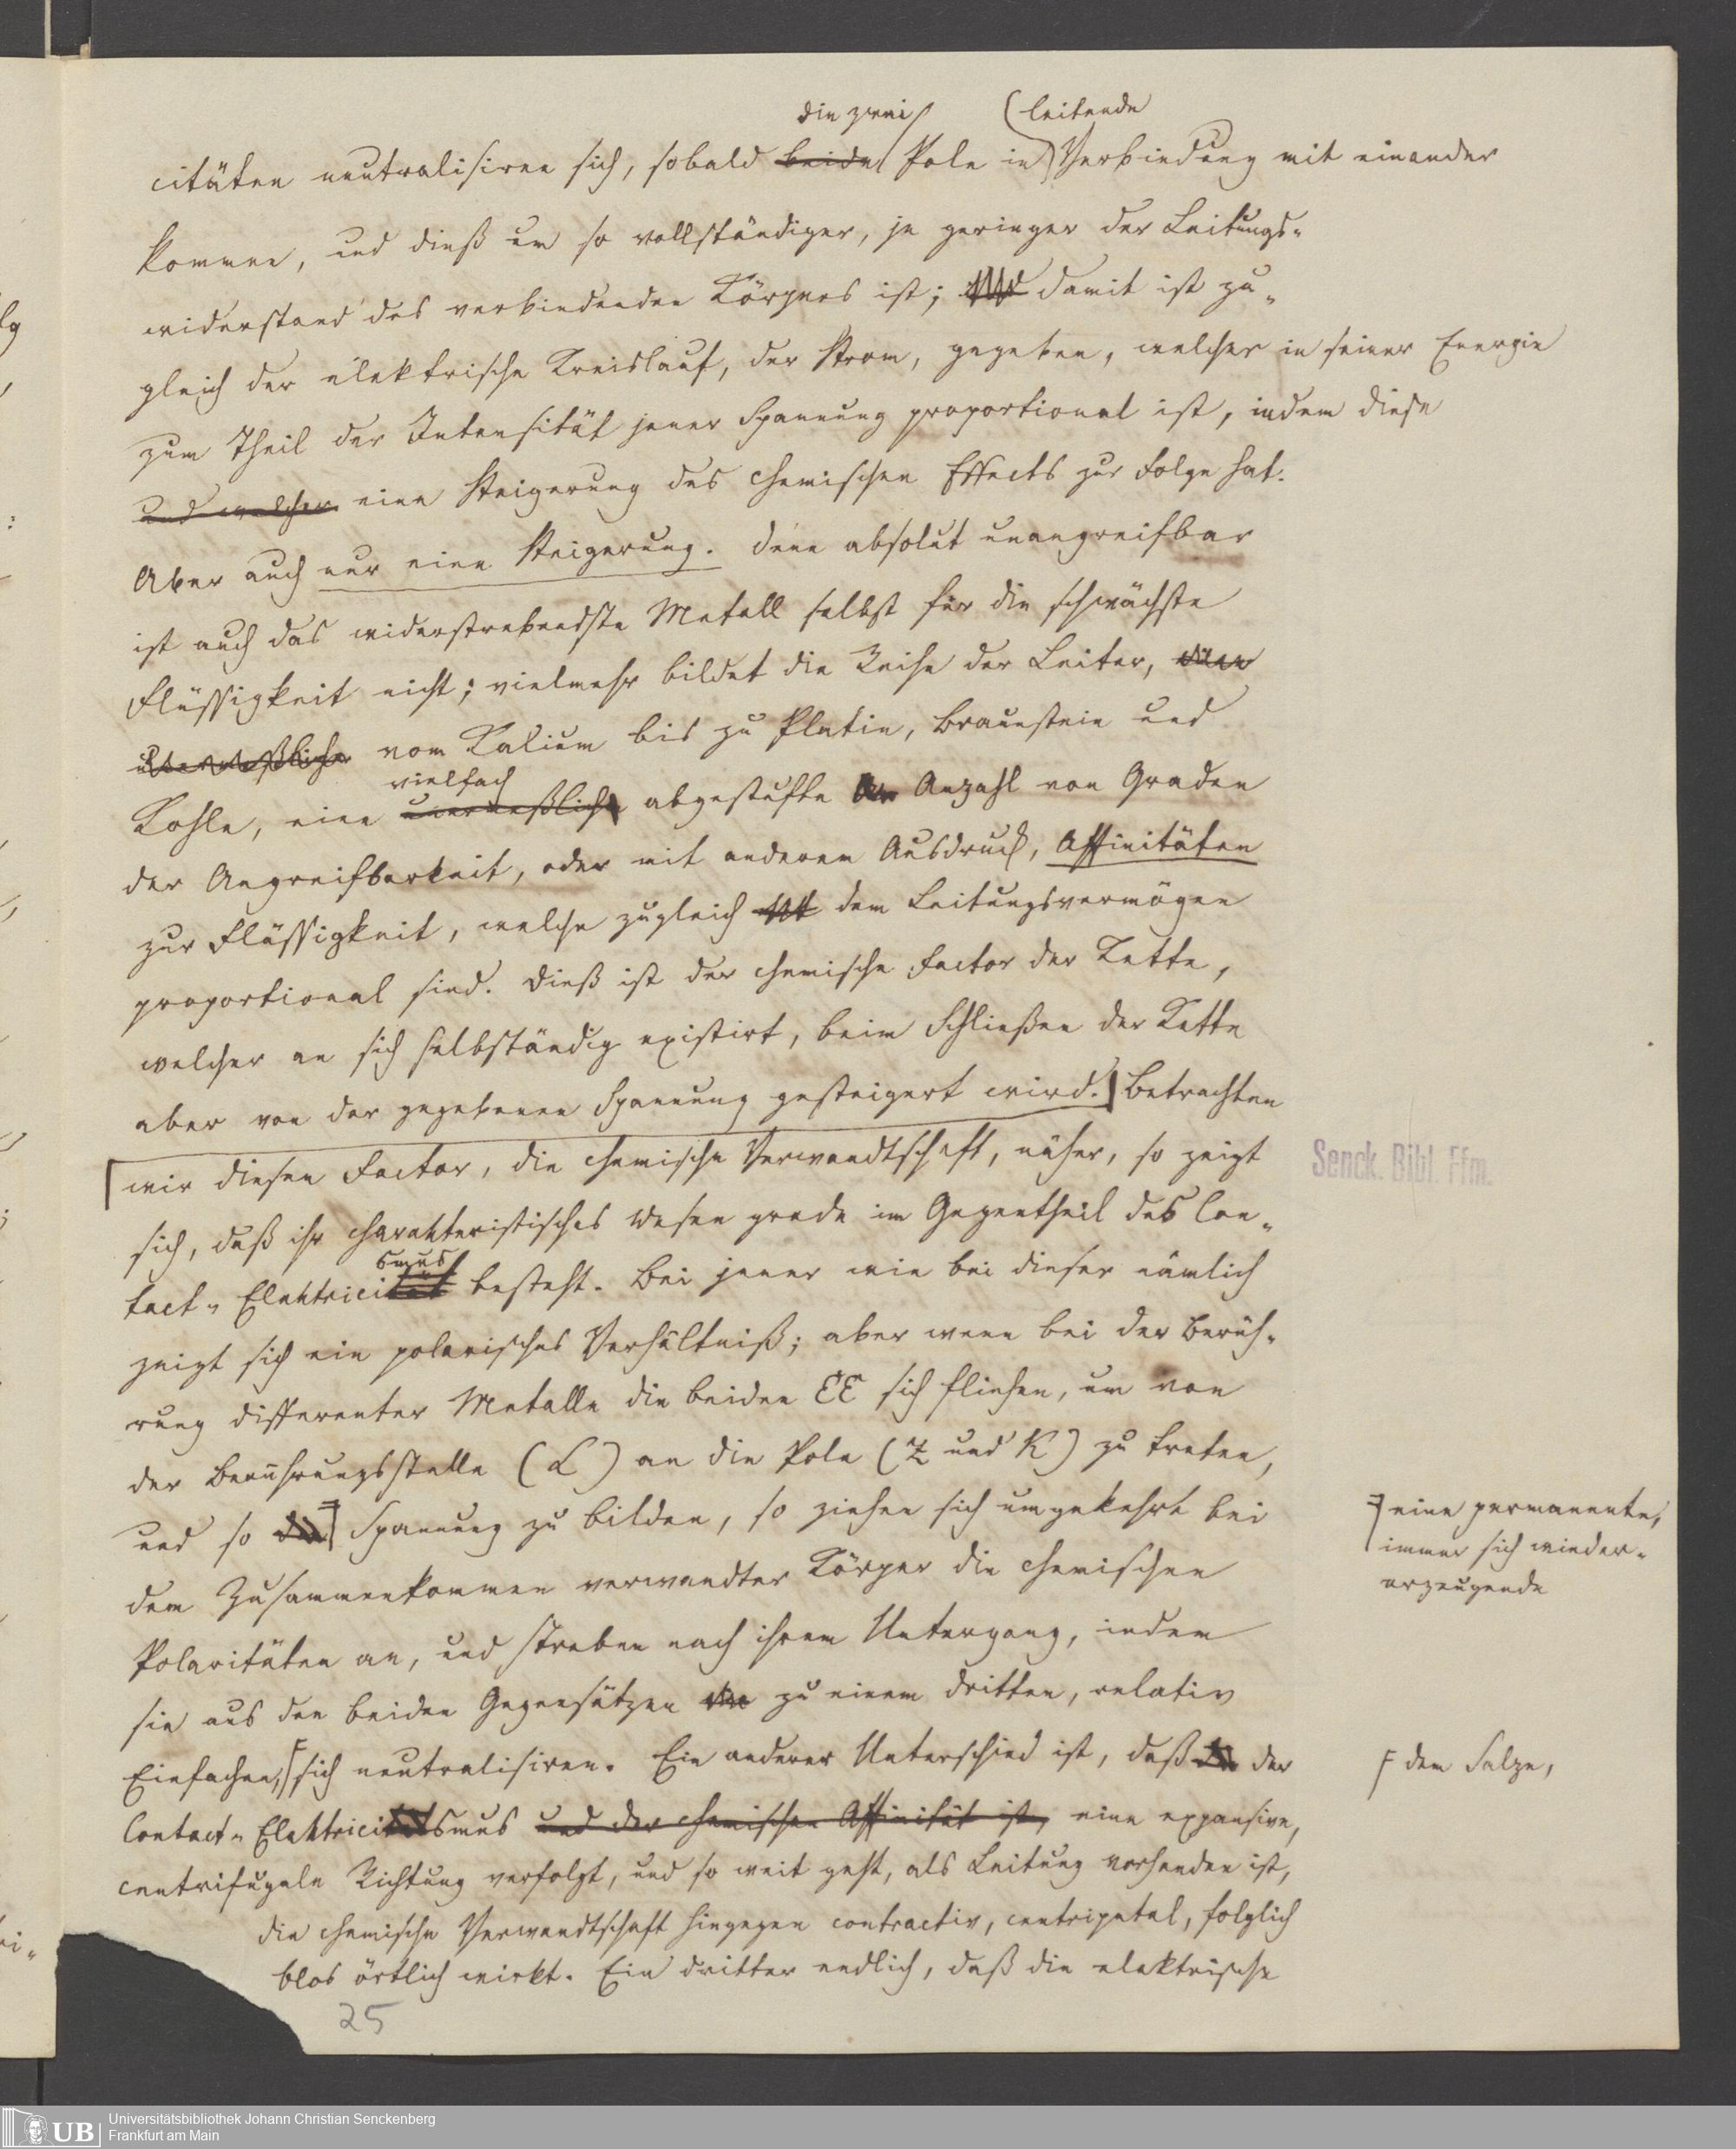 die zwei leitende
citäten neutralisiren sich, sobald beide Pole in Verbindung mit einander
kommen, und dieß um so vollständiger, je geringer der Leitungs-
widerstand des verbindenden Körpers ist; und damit ist zu-
gleich der elektrische Kreislauf, der Strom, gegeben, welcher in seiner Energie
zum Theil der Intensität jener Spannung proportional ist, indem diese
und welcher eine Steigerung des chemischen Effects zur Folge hat.
Aber auch nur eine Steigerung. Denn absolut unangreifbar
ist auch das widerstrebendste Metall selbst für die schwächste
Flüssigkeit nicht; vielmehr bildet die Reihe der Leiter, eine
unermeßliche vom Kalium bis zu Platin, Braunstein und
vielfach
Kohle, eine unermeßlich abgestufte Anzahl von Graden
der Angreifbarkeit, oder mit anderem Ausdruck, Affinitäten
zur Flüssigkeit, welche zugleich mit dem Leitungsvermögen
proportional sind. Dieß ist der chemische Factor der Kette,
welcher an sich selbständig existirt, beim Schließen der Kette
aber von der gegebenen Spannung gesteigert wird. Betrachten
wir diesen Factor, die chemische Verwandtschaft, näher, so zeigt
sich, daß ihr charakteristisches Wesen grade im Gegentheil des Con-
smus
tact-Elektricität besteht. Bei jener wie bei dieser nämlich
zeigt sich ein polarisches Verhältniß; aber wenn bei der Berüh-
rung differenter Metalle die beiden EE sich fliehen, um von
der Berührungsstelle (L) an die Pole (Z und K) zu treten,
und so die Spannung zu bilden, so ziehen sich umgekehrt bei
eine permanente,
immer sich wieder-
erzeugende
dem Zusammenkommen verwandter Körper die chemischen
Polaritäten an, und streben nach ihrem Untergang, indem
sie aus den beiden Gegensätzen zu einem dritten, relativ
Einfachen, sich neutralisiren. Ein anderer Unterschied ist, daß der
dem Salze,
Contact-Elektricitätsmus und der chemischen Affinität ist, eine expansive,
centrifugale Richtung verfolgt, und so weit geht, als Leitung vorhanden ist,
die chemische Verwandtschaft hingegen contractiv, centripetal, folglich
blos örtlich wirkt. Ein dritter endlich, daß die elektrische
25
Senck. Bibl. Ffm.
UB
Universitätsbibliothek Johann Christian Senckenberg
Frankfurt am Main